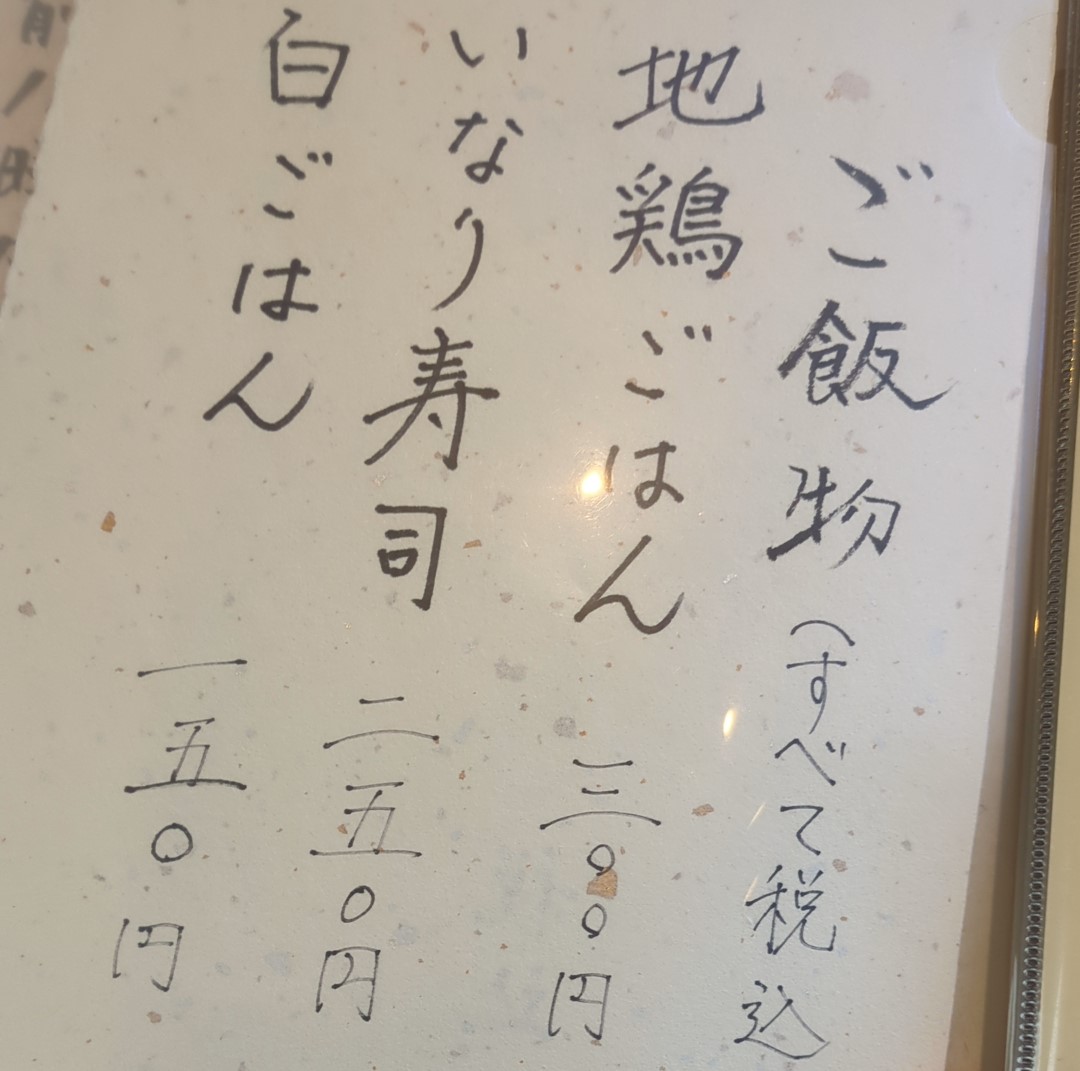 ご飯物(すべて税込
地鶏ごはん 三〇〇円
いなり寿司 二五〇円
白ごはん 一五〇円